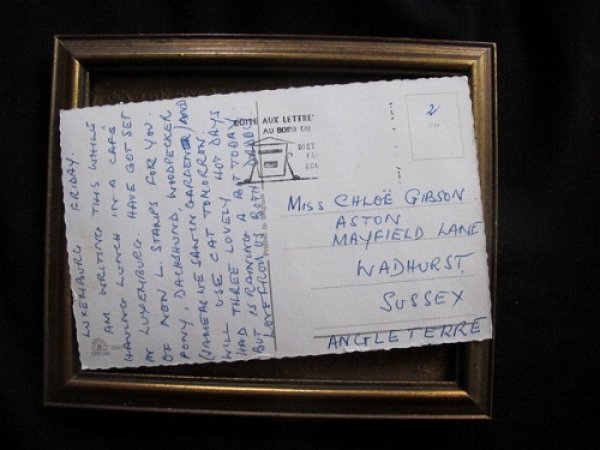 LUXEMBURG FRIDAY.
AM WRITING THIS WHILE
HAVING LUNCH IN A CAFÉ
IN LUXEMBURG. HAVE GOT SET
OF NEW L. STAMPS FOR YOU.
PONY, DACHSHUND, WOODPECKER
(SAME AS WE SAW IN GARDEN) AND
CAT TOMORROW.
WILL USE
HAD THREE LOVELY HOT DAYS
BUT IS RAINING A BIT TODAY.
LOVE FROM US BOTH DADDY
BOITE AUX LETTRE
AU BORD DU
MISS CHLOË GIBSON
ASTON
MAYFIELD LANE
WADHURST
SUSSEX
ANGLETERRE